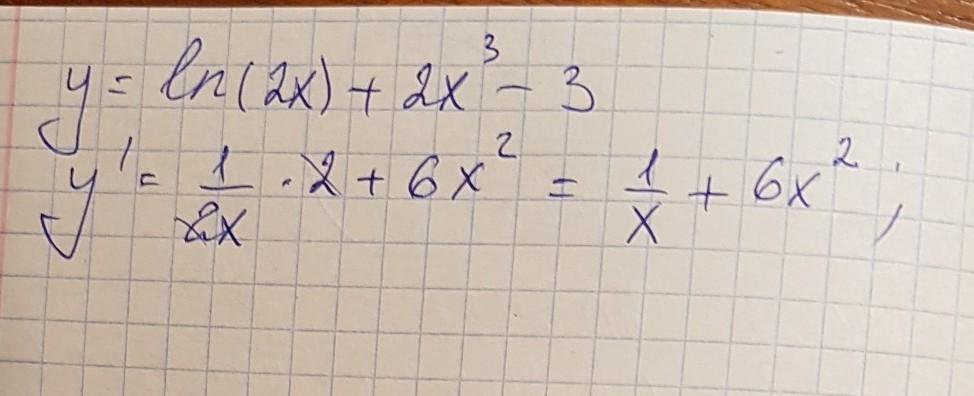 y = ln(2x) + 2x³ - 3
y' = 1/2x · 2 + 6x² = 1/x + 6x²;